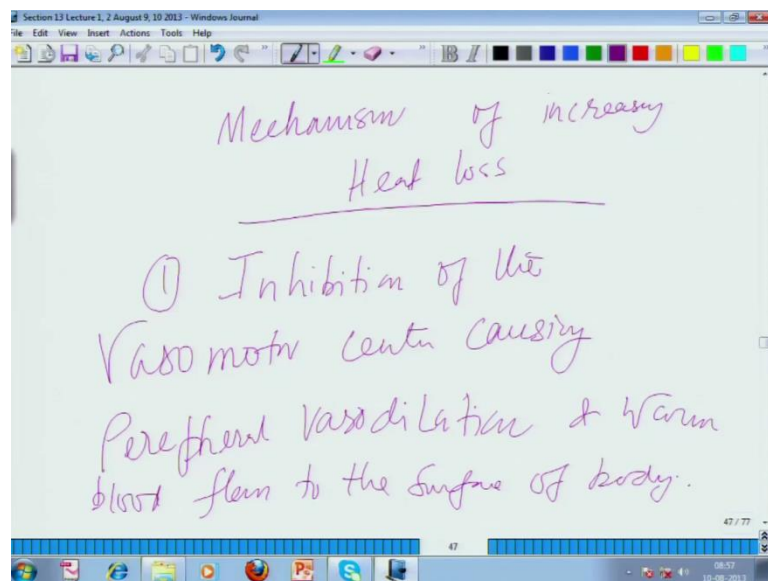 Section 13 Lecture 1, 2 August 9, 10 2013 - Windows Journal
File Edit View Insert Actions Tools Help
Mechanism of increasing
Heat loss
① Inhibition of the
Vasomotor center causing
Perepheral vasodilation & warm
blood flow to the surface of body.
47 / 77
47
08:57
10-08-2013